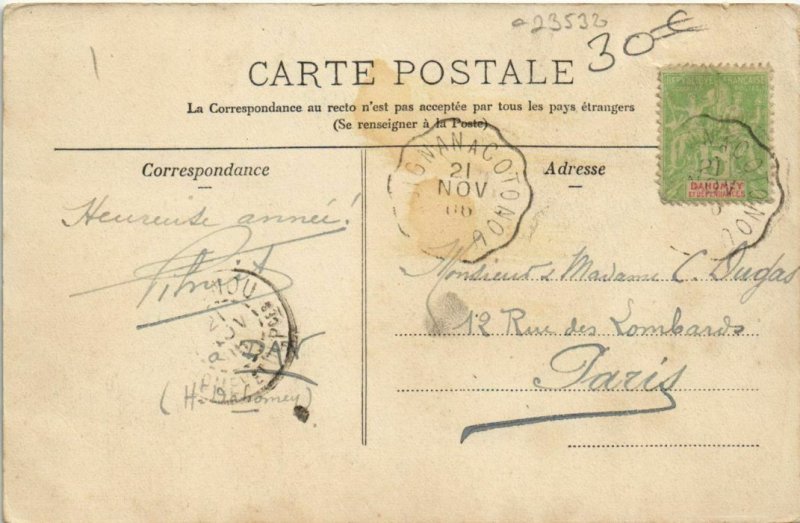 23532
30€
CARTE POSTALE
La Correspondance au recto n'est pas acceptée par tous les pays étrangers
(Se renseigner à la Poste)
Correspondance
Adresse
AGNAN A COTONOU
21
NOV
06
DAHOMEY
ET DÉPENDANCES
Heureuse année!
(H-Dahomey)
Monsieur & Madame C. Dugas
12 Rue des Martyrs
Paris